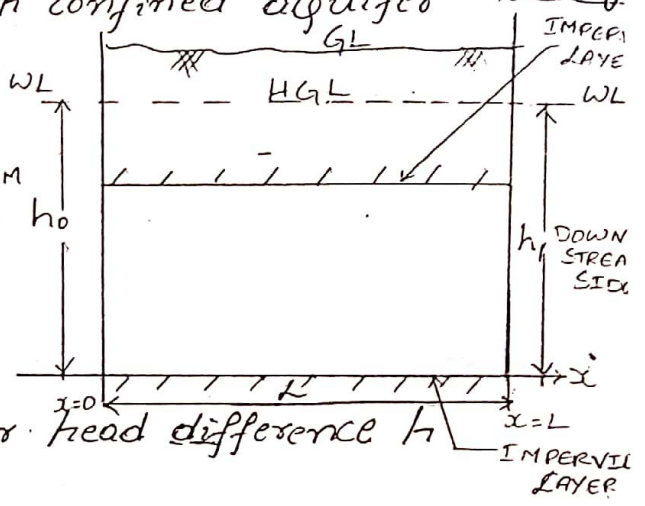 confined aquifer
GL
IMPERV
LAYE
WL
HGL
WL
M
h₀
h₁
DOWN
STREA
SIDE
x
x=0
L
x=L
r. head difference h
IMPERVI
LAYER